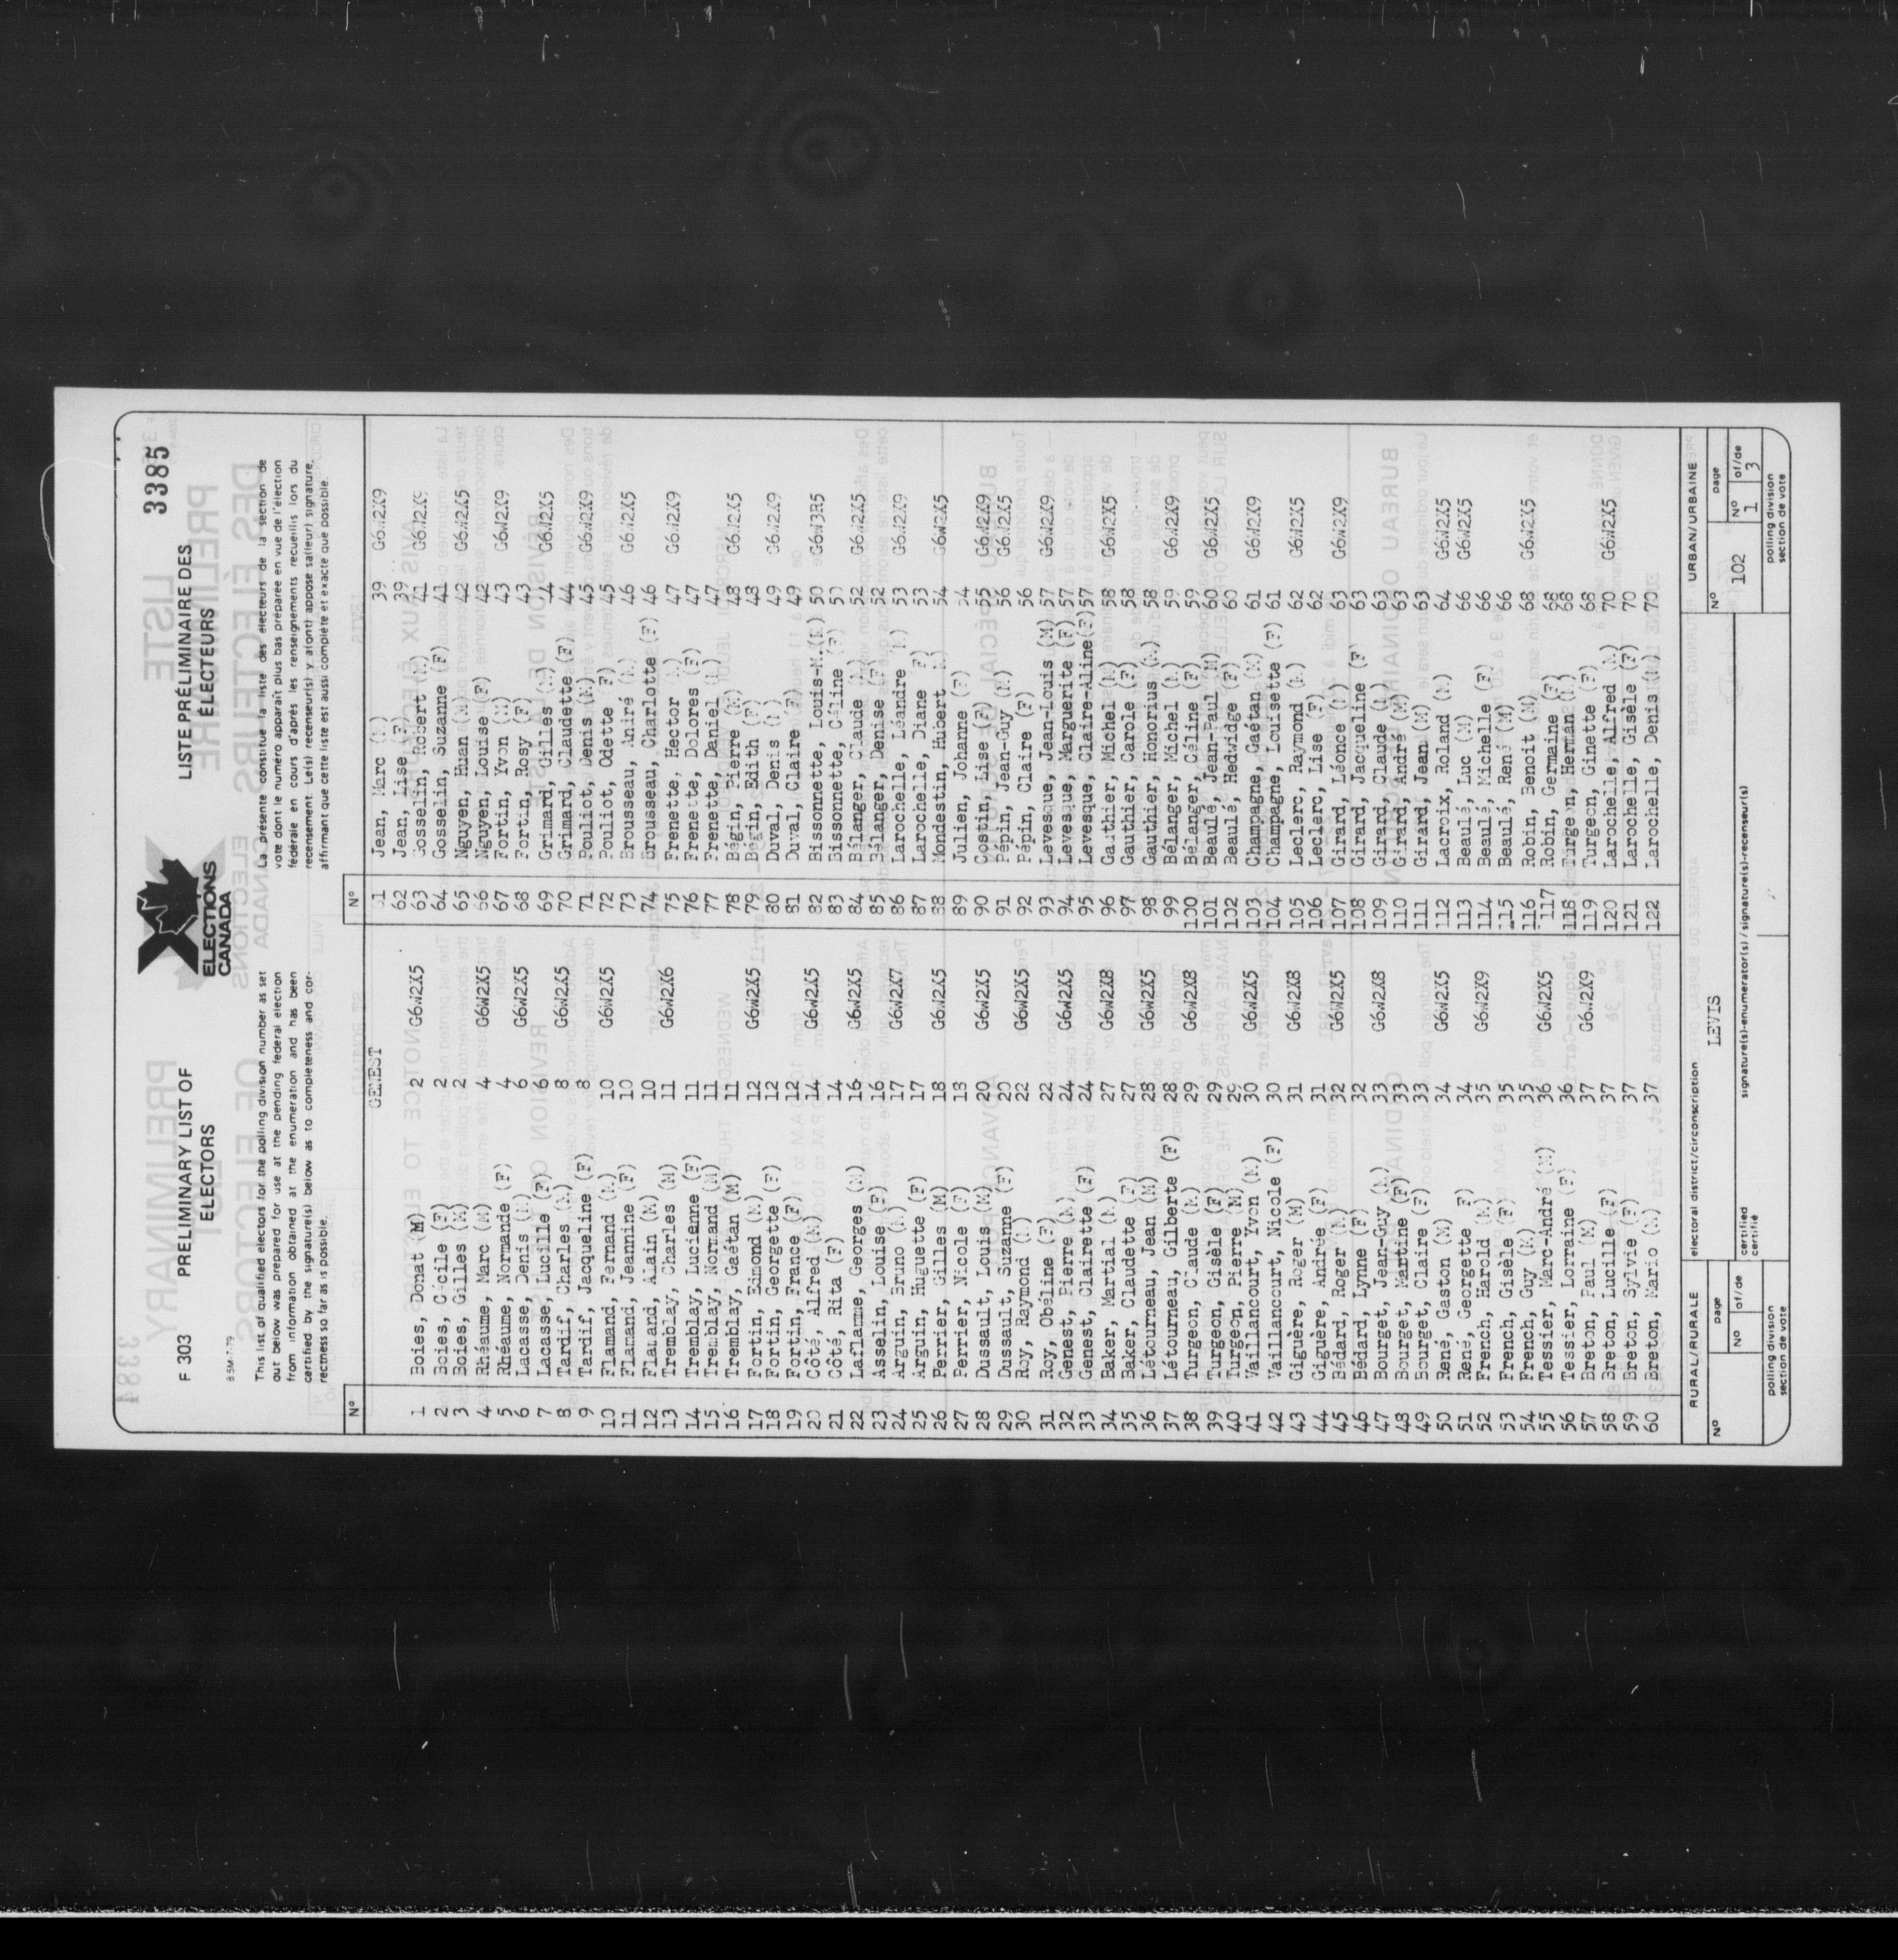 3385
F 303 PRELIMINARY LIST OF ELECTORS
8-5M-7-79
This list of qualified electors for the polling division number as set
out below was prepared for use at the pending federal election
from information obtained at the enumeration and has been
certified by the signature(s) below as to completeness and cor-
rectness so far as is possible.
ELECTIONS
CANADA
LISTE PRÉLIMINAIRE DES ÉLECTEURS
La présente constitue la liste des électeurs de la section de
vote dont le numéro apparaît plus bas préparée en vue de l'élection
fédérale en cours d'après les renseignements recueillis lors du
recensement. Le(s) recenseur(s) y a(ont) apposé sa(leur) signature,
affirmant que cette liste est aussi complète et exacte que possible.
Nº
GENEST
1 Boies, Donat (M) 2 G6W2X5
2 Boies, Cécile (F) 2
3 Boies, Gilles (M) 2
4 Rhéaume, Marc (M) 4 G6W2X5
5 Rhéaume, Normande (F) 4
6 Lacasse, Denis (M) 6 G6W2X5
7 Lacasse, Lucille (F) 6
8 Tardif, Charles (M) 8 G6W2X5
9 Tardif, Jacqueline (F) 8
10 Flamand, Fernand (M) 10 G6W2X5
11 Flamand, Jeannine (F) 10
12 Flamand, Alain (M) 10
13 Tremblay, Charles (M) 11 G6W2X6
14 Tremblay, Lucienne (F) 11
15 Tremblay, Normand (M) 11
16 Tremblay, Gaétan (M) 11
17 Fortin, Edmond (M) 12 G6W2X5
18 Fortin, Georgette (F) 12
19 Fortin, France (F) 12
20 Côté, Alfred (M) 14 G6W2X5
21 Côté, Rita (F) 14
22 Laflamme, Georges (M) 16 G6W2X5
23 Asselin, Louise (F) 16
24 Arguin, Bruno (M) 17 G6W2X7
25 Arguin, Huguette (F) 17
26 Perrier, Gilles (M) 18 G6W2X5
27 Perrier, Nicole (F) 18
28 Dussault, Louis (M) 20 G6W2X5
29 Dussault, Suzanne (F) 20
30 Roy, Raymond (M) 22 G6W2X5
31 Roy, Obéline (F) 22
32 Genest, Pierre (M) 24 G6W2X5
33 Genest, Clairette (F) 24
34 Baker, Martial (M) 27 G6W2X8
35 Baker, Claudette (F) 27
36 Létourneau, Jean (M) 28 G6W2X5
37 Létourneau, Gilberte (F) 28
38 Turgeon, Claude (M) 29 G6W2X8
39 Turgeon, Gisèle (F) 29
40 Turgeon, Pierre (M) 29
41 Vaillancourt, Yvon (M) 30 G6W2X5
42 Vaillancourt, Nicole (F) 30
43 Giguère, Roger (M) 31 G6W2X8
44 Giguère, Andrée (F) 31
45 Bédard, Roger (M) 32 G6W2X5
46 Bédard, Lynne (F) 32
47 Bourget, Jean-Guy (M) 33 G6W2X8
48 Bourget, Martine (F) 33
49 Bourget, Claire (F) 33
50 René, Gaston (M) 34 G6W2X5
51 René, Georgette F) 34
52 French, Harold (M) 35 G6W2X9
53 French, Gisèle (F) 35
54 French, Guy (M) 35
55 Tessier, Marc-André (M) 36 G6W2X5
56 Tessier, Lorraine (F) 36
57 Breton, Paul (M) 37 G6W2X9
58 Breton, Lucille (F) 37
59 Breton, Sylvie (F) 37
60 Breton, Mario (M) 37
Nº
61 Jean, Marc (M) 39 G6W2X9
62 Jean, Lise (F) 39
63 Gosselin, Robert (M) 41 G6W2X9
64 Gosselin, Suzanne (F) 41
65 Nguyen, Huan (M) 42 G6W2X5
66 Nguyen, Louise (F) 42
67 Fortin, Yvon (M) 43 G6W2X9
68 Fortin, Rosy (F) 43
69 Grimard, Gilles (M) 44 G6W2X5
70 Grimard, Claudette (F) 44
71 Pouliot, Denis (M) 45 G6W2X9
72 Pouliot, Odette F) 45
73 Brousseau, André (M) 46 G6W2X5
74 Brousseau, Charlotte (F) 46
75 Frenette, Hector M) 47 G6W2X9
76 Frenette, Dolores (F) 47
77 Frenette, Daniel (M) 47
78 Bégin, Pierre (M) 48 G6W2X5
79 Bégin, Edith (F) 48
80 Duval, Denis (M) 49 G6W2X9
81 Duval, Claire (F) 49
82 Bissonnette, Louis-M.(M) 50 G6W3R5
83 Bissonnette, Céline (F) 50
84 Bélanger, Claude (M) 52 G6W2X5
85 Bélanger, Denise (F) 52
86 Larochelle, Léandre M) 53 G6W2X9
87 Larochelle, Diane F) 53
88 Mondestin, Hubert M) 54 G6W2X5
89 Julien, Johanne (F) 54
90 Costin, Lise (F) 55 G6W2X9
91 Pépin, Jean-Guy (M) 56 G6W2X5
92 Pépin, Claire (F) 56
93 Levesque, Jean-Louis (M) 57 G6W2X9
94 Levesque, Marguerite (F) 57
95 Levesque, Claire-Aline(F) 57
96 Gauthier, Michel (M) 58 G6W2X5
97 Gauthier, Carole (F) 58
98 Gauthier, Honorius (M) 58
99 Bélanger, Michel (M) 59 G6W2X9
100 Bélanger, Céline (F) 59
101 Beaulé, Jean-Paul M) 60 G6W2X5
102 Beaulé, Hedwidge (F) 60
103 Champagne, Gaétan (M) 61 G6W2X9
104 Champagne, Louisette (F) 61
105 Leclerc, Raymond (M) 62 G6W2X5
106 Leclerc, Lise (F) 62
107 Girard, Léonce (M) 63 G6W2X9
108 Girard, Jacqueline (F) 63
109 Girard, Claude (M) 63
110 Girard, André (M) 63
111 Girard, Jean (M) 63
112 Lacroix, Roland (M) 64 G6W2X5
113 Beaulé, Luc (M) 66 G6W2X5
114 Beaulé, Michelle (F) 66
115 Beaulé, René (M) 66
116 Robin, Benoit (M) 68 G6W2X5
117 Robin, Germaine (F) 68
118 Turgeon, Herman (M) 68
119 Turgeon, Ginette (F) 68
120 Larochelle, Alfred (M) 70 G6W2X5
121 Larochelle, Gisèle (F) 70
122 Larochelle, Denis (M) 70
RURAL/RURALE
Nº
page
Nº of/de
polling division
section de vote
electoral district/circonscription
LEVIS
certified
certifié
signature(s)-enumerator(s) / signature(s)-recenseur(s)
URBAN/URBAINE
Nº 102
page
Nº 1 of/de 3
polling division
section de vote